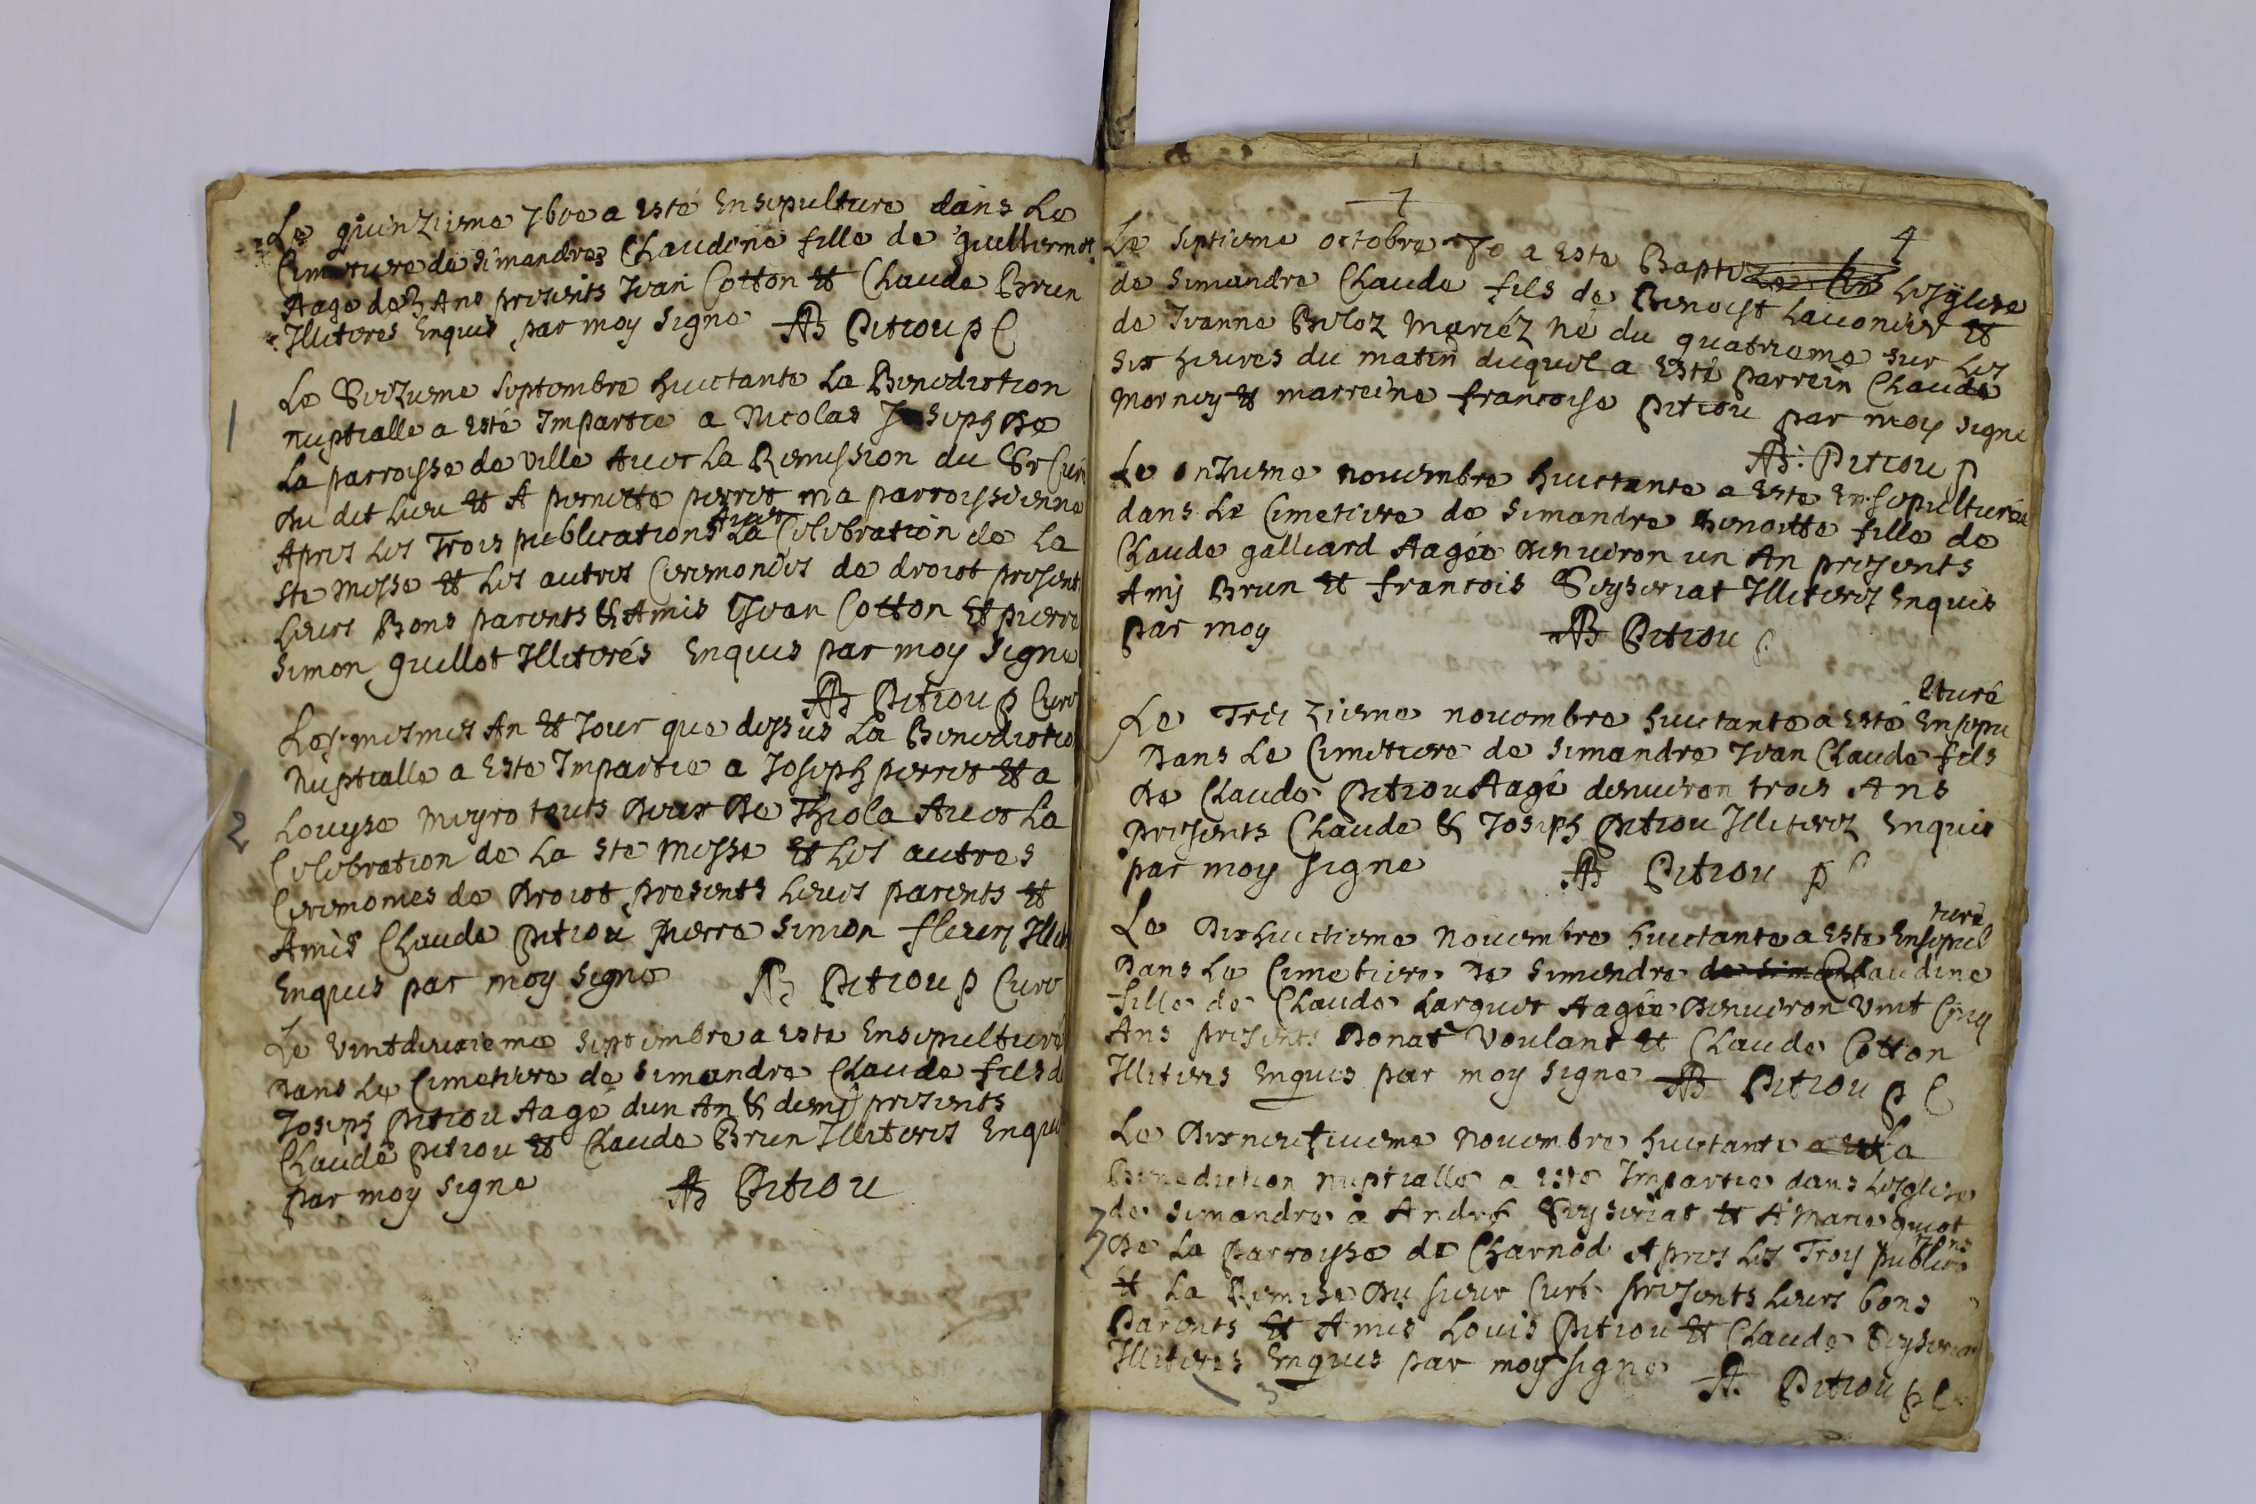 Le quinziesme 7bre a esté Ensepulture dans Le
Cimetiere de simandres Claudine fille de guillermet
Aage de 3 Ans presents Jean Cotton et Claude Brun
Illiteres Enquis par moy signe AB Pitiou p C
1
Le Seiziesme septembre huictante La Benediction
nuptialle a esté Impartie a Nicolas Joseph De
La parroisse de ville Avec La Remission du Sr Curé
Du dit lieu et A pernette perret ma parroissienne
Apres les Trois publications Avec La Celebration de La
Ste Messe et les autres Ceremonies de droict present
Leurs Bons parents & Amis Jean Cotton et pierre
Simon guillot Illiterés Enquis par moy Signe
AB Pitiou p Curé
Les mesmes An et Jour que dessus La Benediction
Nuptialle a Este Impartie a Joseph perret et a
2
Louyse meyro touts Deux De Thiola Avec La
Celebration de La Ste Messe et les autres
Ceremonies de Droict presents leurs parents et
Amis Claude Pitiou pierre simon fleury Illit
Enquis par moy Signe AB Pitiou p Curé
Le vintdeuxieme septembre a este Ensepulturé
Dans Le Cimetiere de simandre Claude fils de
Joseph Pitiou Aagé dun An & demj presents
Claude Pitiou et Claude Brun Illiteres Enquis
par moy Signe AB Pitiou
4
Le septiesme octobre 80 a Este Baptize Lesglise
de Simandre Claude fils de Benoist Lauonier et
de Jeanne Buloz Mariéz né du quatrieme sur les
six heures du matin duquel a esté parrein Claude
Morney et marreine francoise Pitiou par moy signe
AB Pitiou p
Le onzieme nouembre huictante a Este Ensepulturée
dans Le Cimetiere de Simandre Benoitte fille de
Claude galliard Aagée Denuiron un An presents
Amj Brun et francois Seyseriat Illiteres Enquis
par moy AB Pitiou p
Le Treiziesme nouembre huictante a Esté Ensepulturé
Dans Le Cimetiere de Simandre Jean Claude fils
De Claude Pitiou Aagé denuiron trois Ans
presents Claude & Joseph Pitiou Illiterez Enquis
par moy signe AB Pitiou p C
Le Dixhuictiesme Nouembre huictante a Este Ensepulturé
Dans Le Cimetiere De Simandre de Siman Claudine
fille de Claude Larquet Aagée Denuiron vint Cinq
Ans presents Donat Voulant et Claude Cotton
Illiteres Enquis par moy Signe AB Pitiou p C
Le Dixneufiesme Nouembre huictante a esté La
Benediction nuptialle a este Impartie dans Lesglise
de Simandre a André Seyseriat et A Marie guiot
3
De La parroisse de Charnod Apres les Troy publications
et La Remise Du sieur Curé presents leurs bons
Parents et Amis Louis Pitiou et Claude Seyseriat
Illiteres Enquis par moy signe A Pitiou p C
3